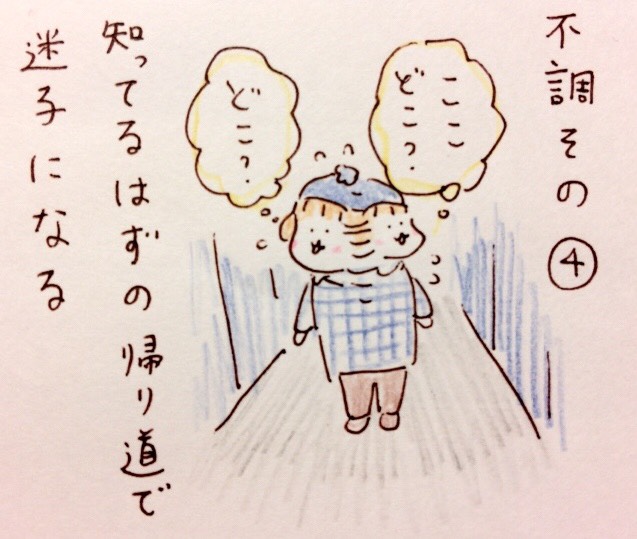 不調その④
ここ
どこっ?
どこっ?
知ってるはずの帰り道で
迷子になる